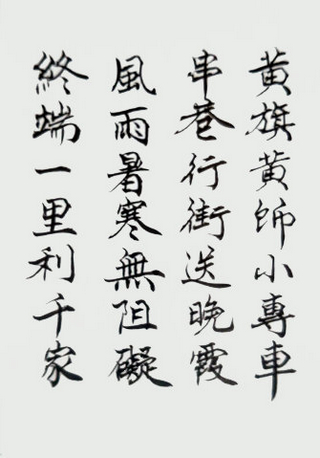 黄旗黄飾小專車
串巷行街送晚霞
風雨暑寒無阻礙
終端一里利千家